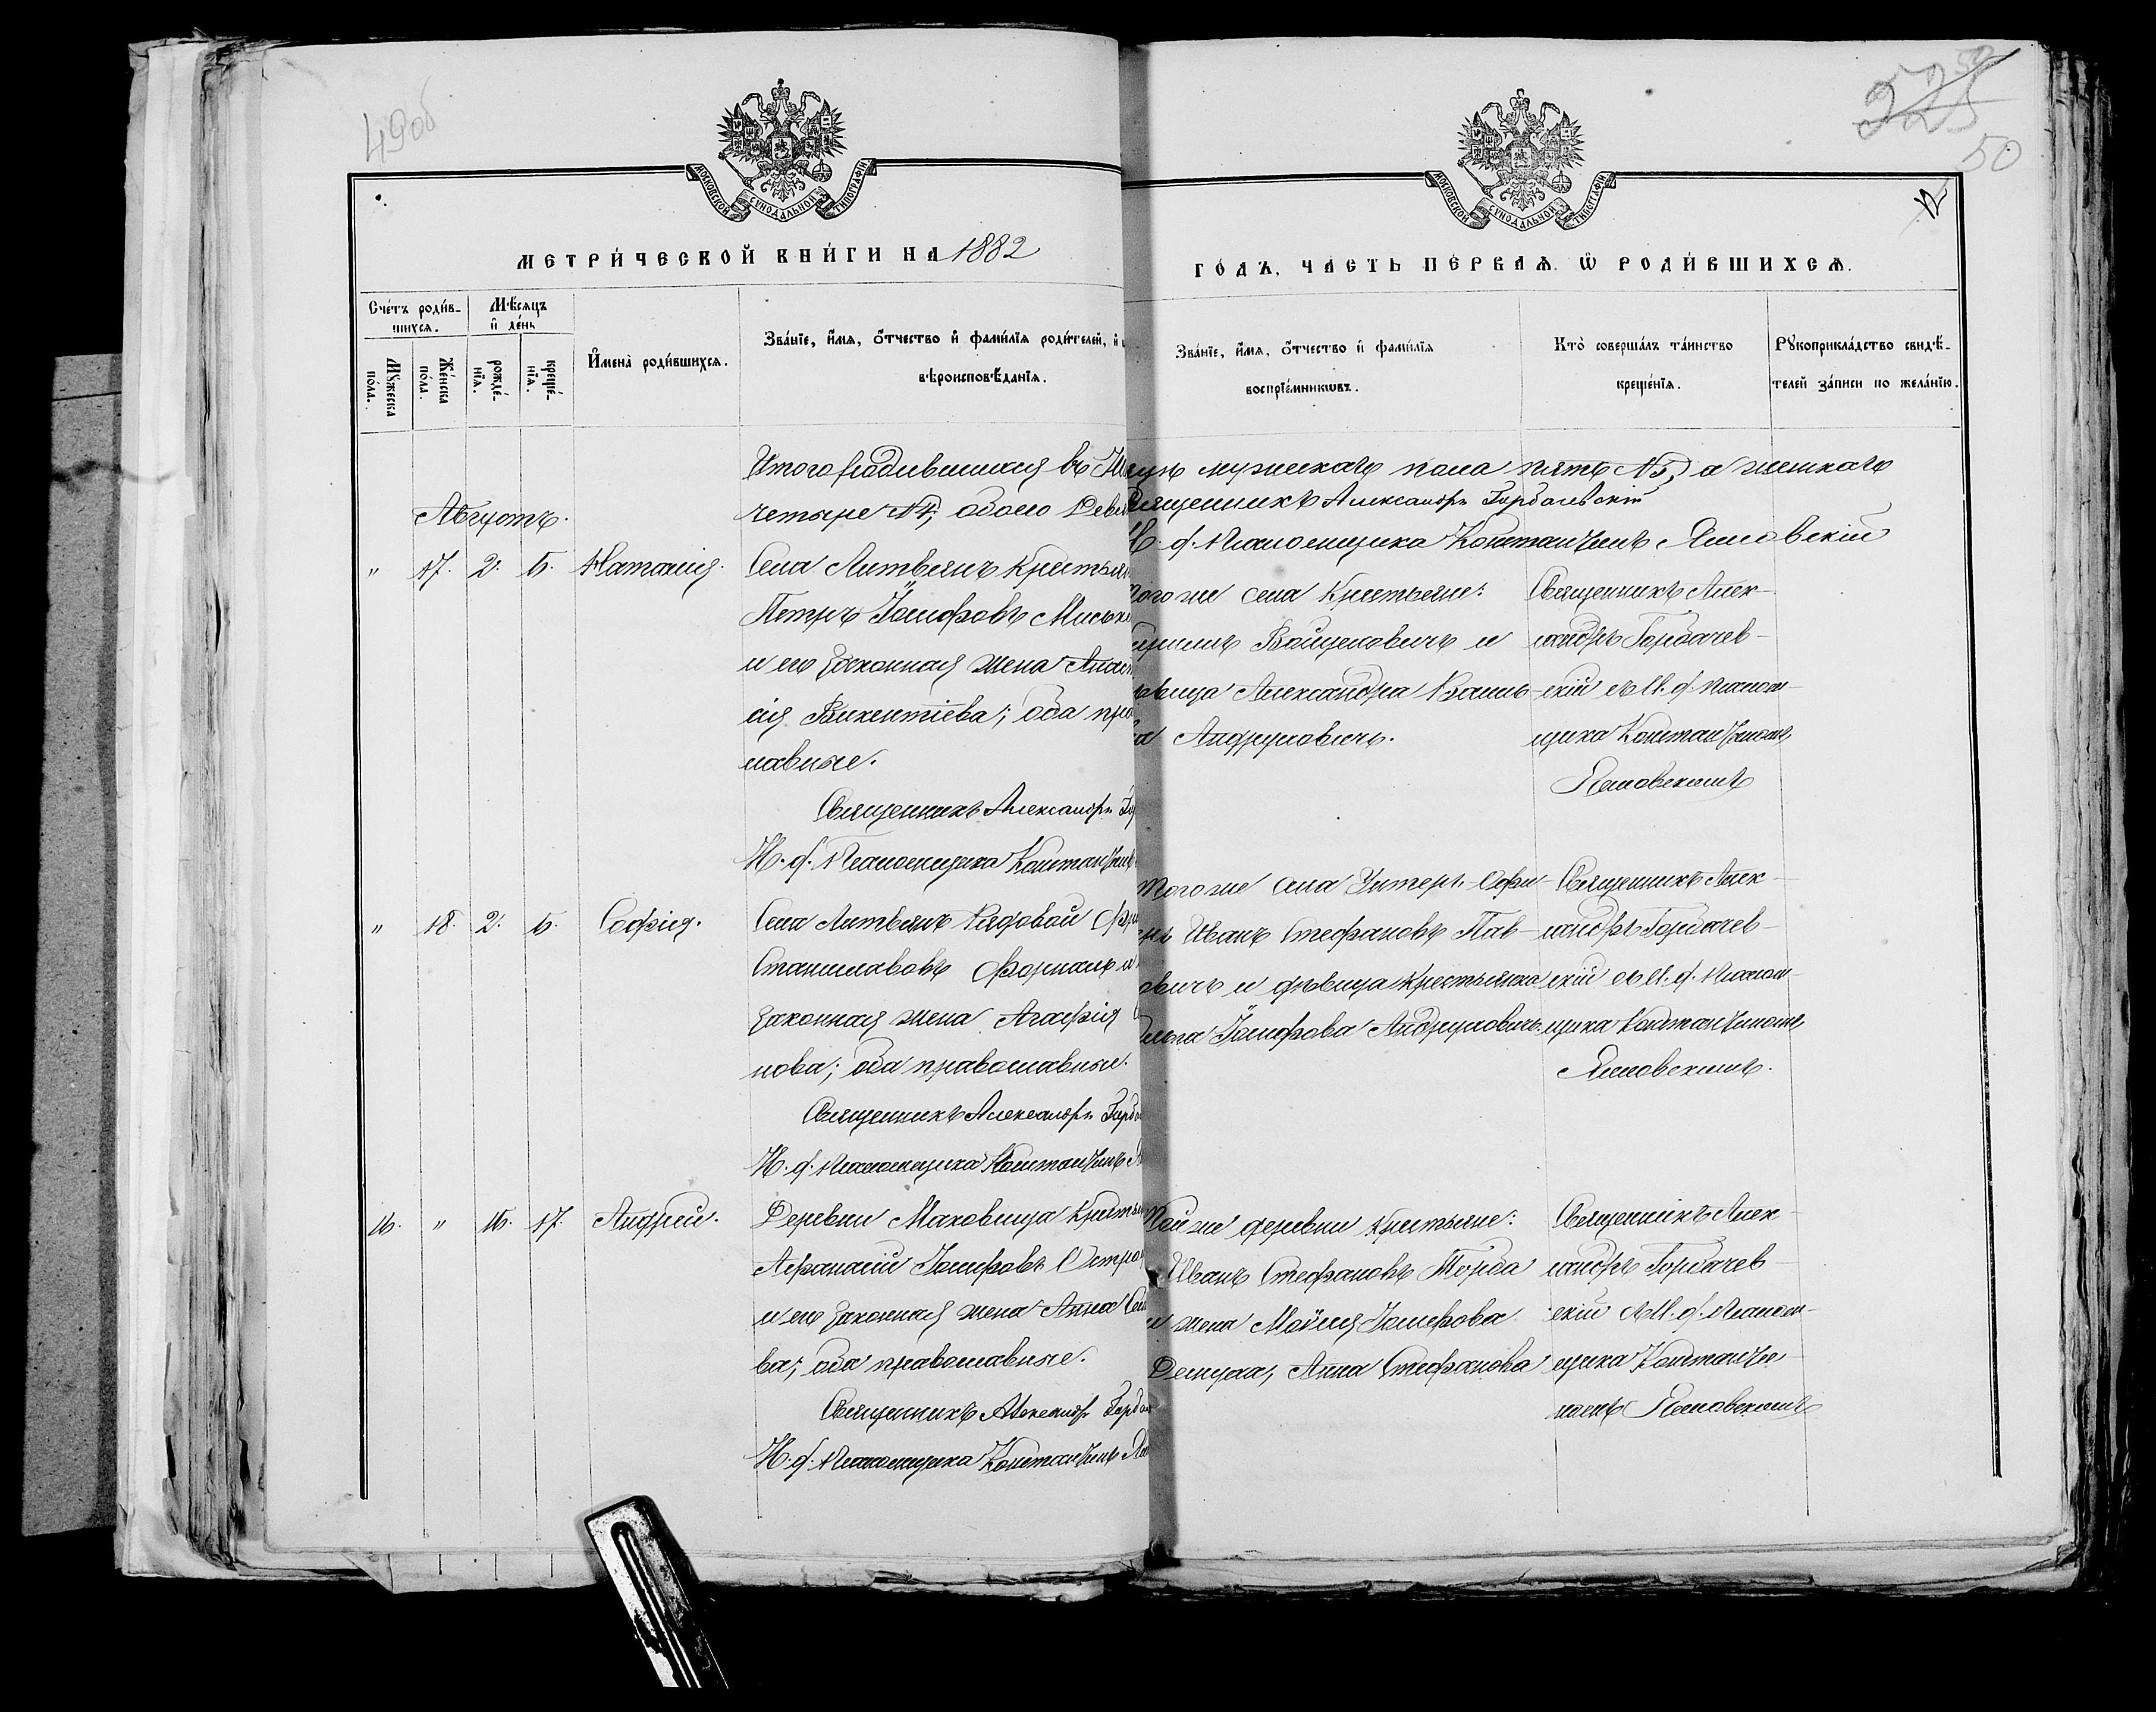 49об
50
МОСКОВСКОЙ СѴНОДАЛЬНОЙ ТИПОГРАФІИ
МОСКОВСКОЙ СѴНОДАЛЬНОЙ ТИПОГРАФІИ
МЕТРИ́ЧЕСКОЙ КНИ́ГИ НА 1882
ГО́ДЪ, ЧА́СТЬ ПЕ́РВАѦ, Ѡ РОДИ́ВШИХСѦ.
Сче́тъ роди́в-
шихсѧ.
Мѣ́сяцъ
и҆ де́нь
Мꙋ́жеска
по́ла.
Же́нска
по́ла.
рожде́-
нїѧ.
креще́-
нїѧ.
И҆мена̀ роди́вшихсѧ.
Зва́нїе, и҆́мѧ, ѻ҆́тчество и҆ фами́лїѧ роди́телей, и҆
вѣроисповѣ́данїѧ.
Зва́нїе, и҆́мѧ, ѻ҆́тчество и҆ фами́лїѧ
воспрїе́мникѡвъ.
Кто̀ соверша́лъ та́инство
креще́нїѧ.
Рꙋкоприкла́дство свидѣ́-
телей за́писи по жела́нїю.
Итого родившихся въ
мужескаго пола пять №5, а женскаго
Августъ.
четыре №4, обоего
Священникъ Александръ Горбачевскій
И. д. Псаломщика Константинъ Яновскій
" 17. 2. 5. Наталія.
Села Литвянъ Крестьян
Петръ Іосифовъ
и его законная жена Анаст
сія Викентіева; оба пра
лавные.
Священникъ Александръ Го
И. д. Псаломщика Константинъ
того же села Крестьяне:
Войцеховичъ и
Александра
Андруковичъ.
Священникъ Алек-
сандръ Горбачев-
скій съ И. д. Псалом-
щика Константиномъ
Яновскимъ
" 18. 2. 5. Софія.
Села Литвянъ Рядовой
Станиславовъ Форманъ и
законная жена Агафія
нова; оба православные.
Священникъ Александръ Горба
И. д. Псаломщика Константинъ
Того же села Унтеръ-Офи-
церъ Иванъ Стефановъ Пав-
овичъ и дѣвица Крестьянка
Іосифова Андруковичъ.
Священникъ Алек-
сандръ Горбачев-
скій съ И. д. Псалом-
щика Константиномъ
Яновскимъ.
16. " 15. 17. Андрей.
Деревни Маховища Крестья
Афанасій Іосифовъ Остро
и его законная жена Анна
ва; оба православные.
Священникъ Александръ Горба
И. д. Псаломщика Константинъ Ян
Той же деревни Крестьяне:
Иванъ Стефановъ Торба
и жена Іосифова
Анна Стефанова
Священникъ Алек-
сандръ Горбачев-
скій съ И. д. Псалом-
щика Константи-
номъ Яновскимъ